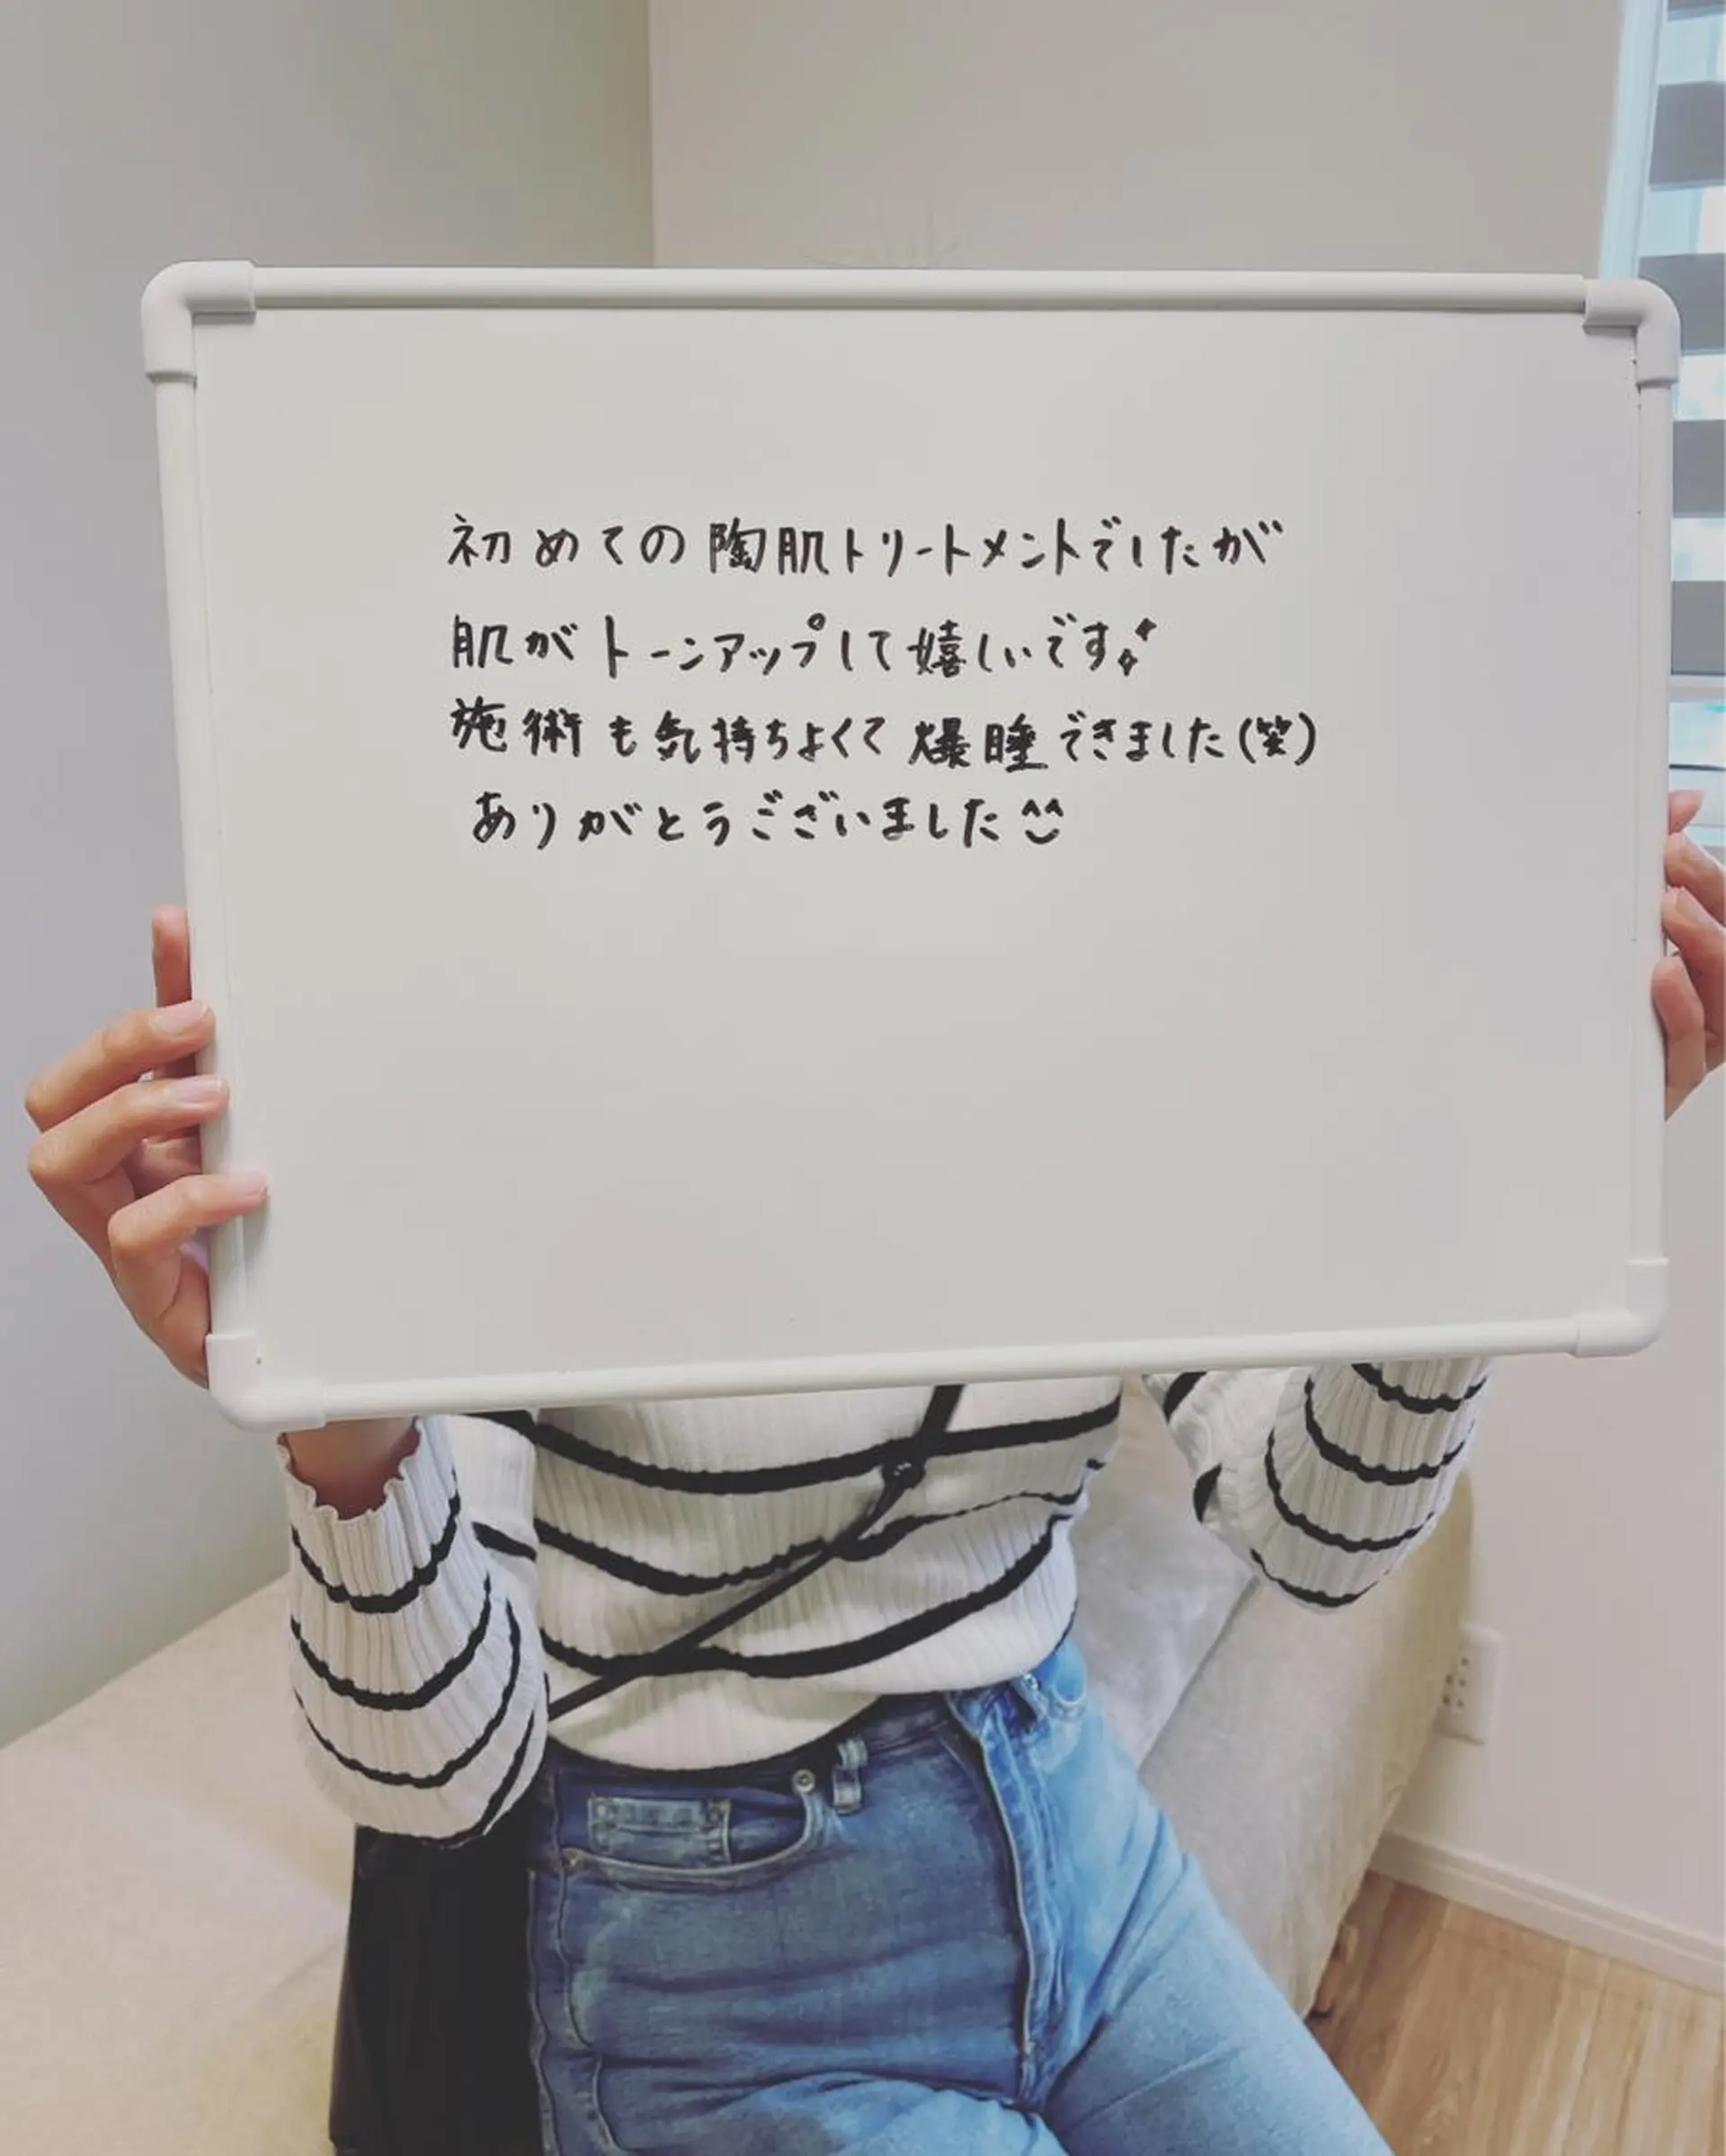 初めての陶肌トリートメントでしたが
肌がトーンアップして嬉しいです✨
施術も気持ちよくて爆睡できました(笑)
ありがとうございました^^